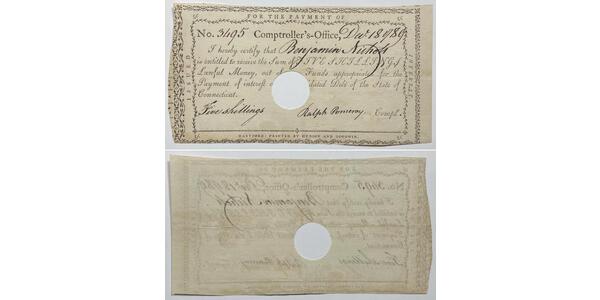 FOR THE PAYMENT OF
No. 3495 Comptroller's-Office, Decr 18 1789
I hereby certify that Benjamin Nichols
is entitled to receive the Sum of FIVE SHILLINGS
Lawful Money, out of Funds appropriated for the
Payment of interest o dated Debt of the State of
Connecticut.
Five shillings Ralph Pomeroy Compt.
HARTFORD: PRINTED BY HUDSON AND GOODWIN.